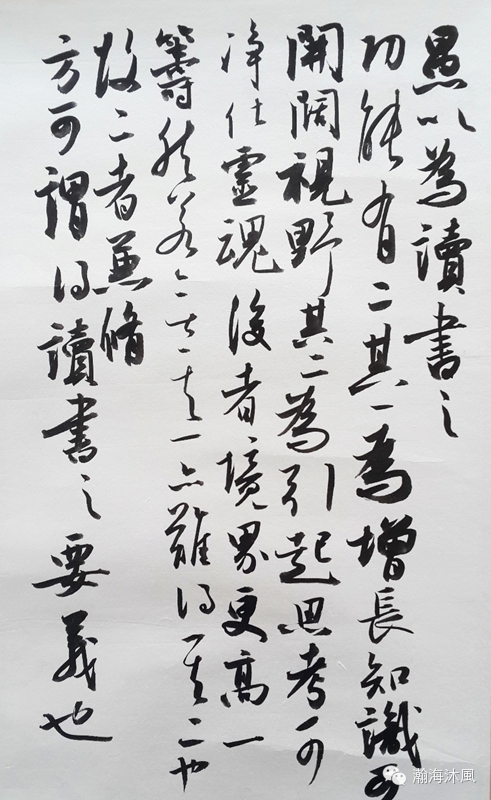 愚以為讀書之
功能有二其一為增長知識可
開闊視野其二為引起思考可
净化靈魂後者境界更高一
籌然若其一亦難得其二也
故二者兼脩
方可謂得讀書之要義也
瀚海沐風